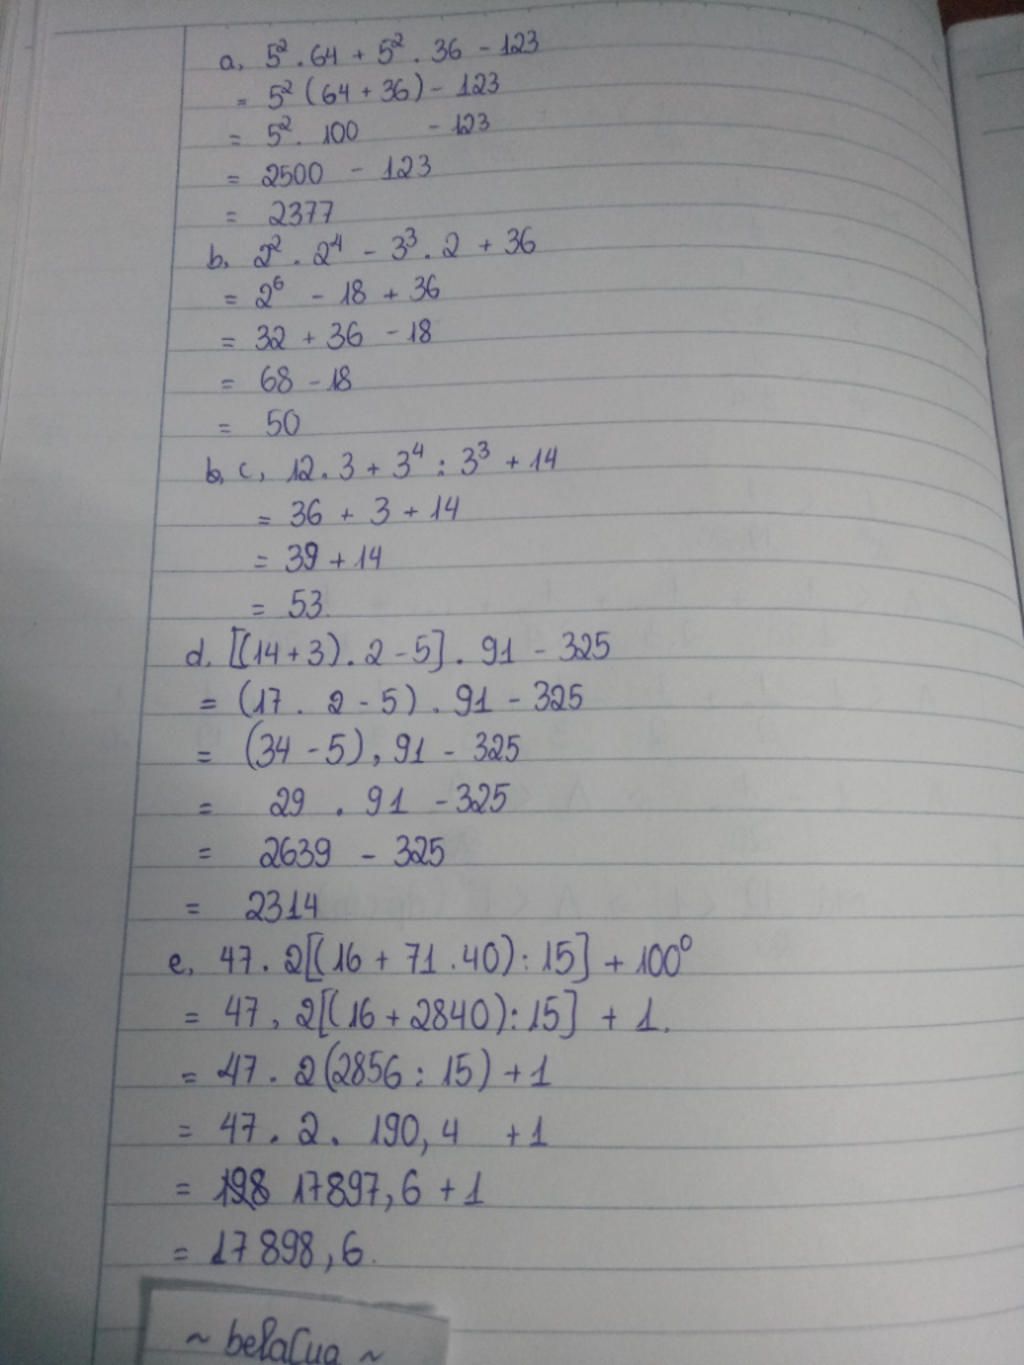 a, 5² . 64 + 5² . 36 - 123
= 5² (64 + 36) - 123
= 5² . 100 - 123
= 2500 - 123
= 2377
b, 2² . 2⁴ - 3³ . 2 + 36
= 2⁶ - 18 + 36
= 32 + 36 - 18
= 68 - 18
= 50
b, c, 12 . 3 + 3⁴ : 3³ + 14
= 36 + 3 + 14
= 39 + 14
= 53
d. [(14 + 3) . 2 - 5] . 91 - 325
= (17 . 2 - 5) . 91 - 325
= (34 - 5) , 91 - 325
= 29 . 91 - 325
= 2639 - 325
= 2314
e, 47 . 2[(16 + 71 . 40) : 15] + 100⁰
= 47 , 2[(16 + 2840) : 15] + 1.
= 47 . 2(2856 : 15) + 1
= 47 . 2 . 190,4 + 1
= 17897,6 + 1
= 17898,6.
~ belaCua ~